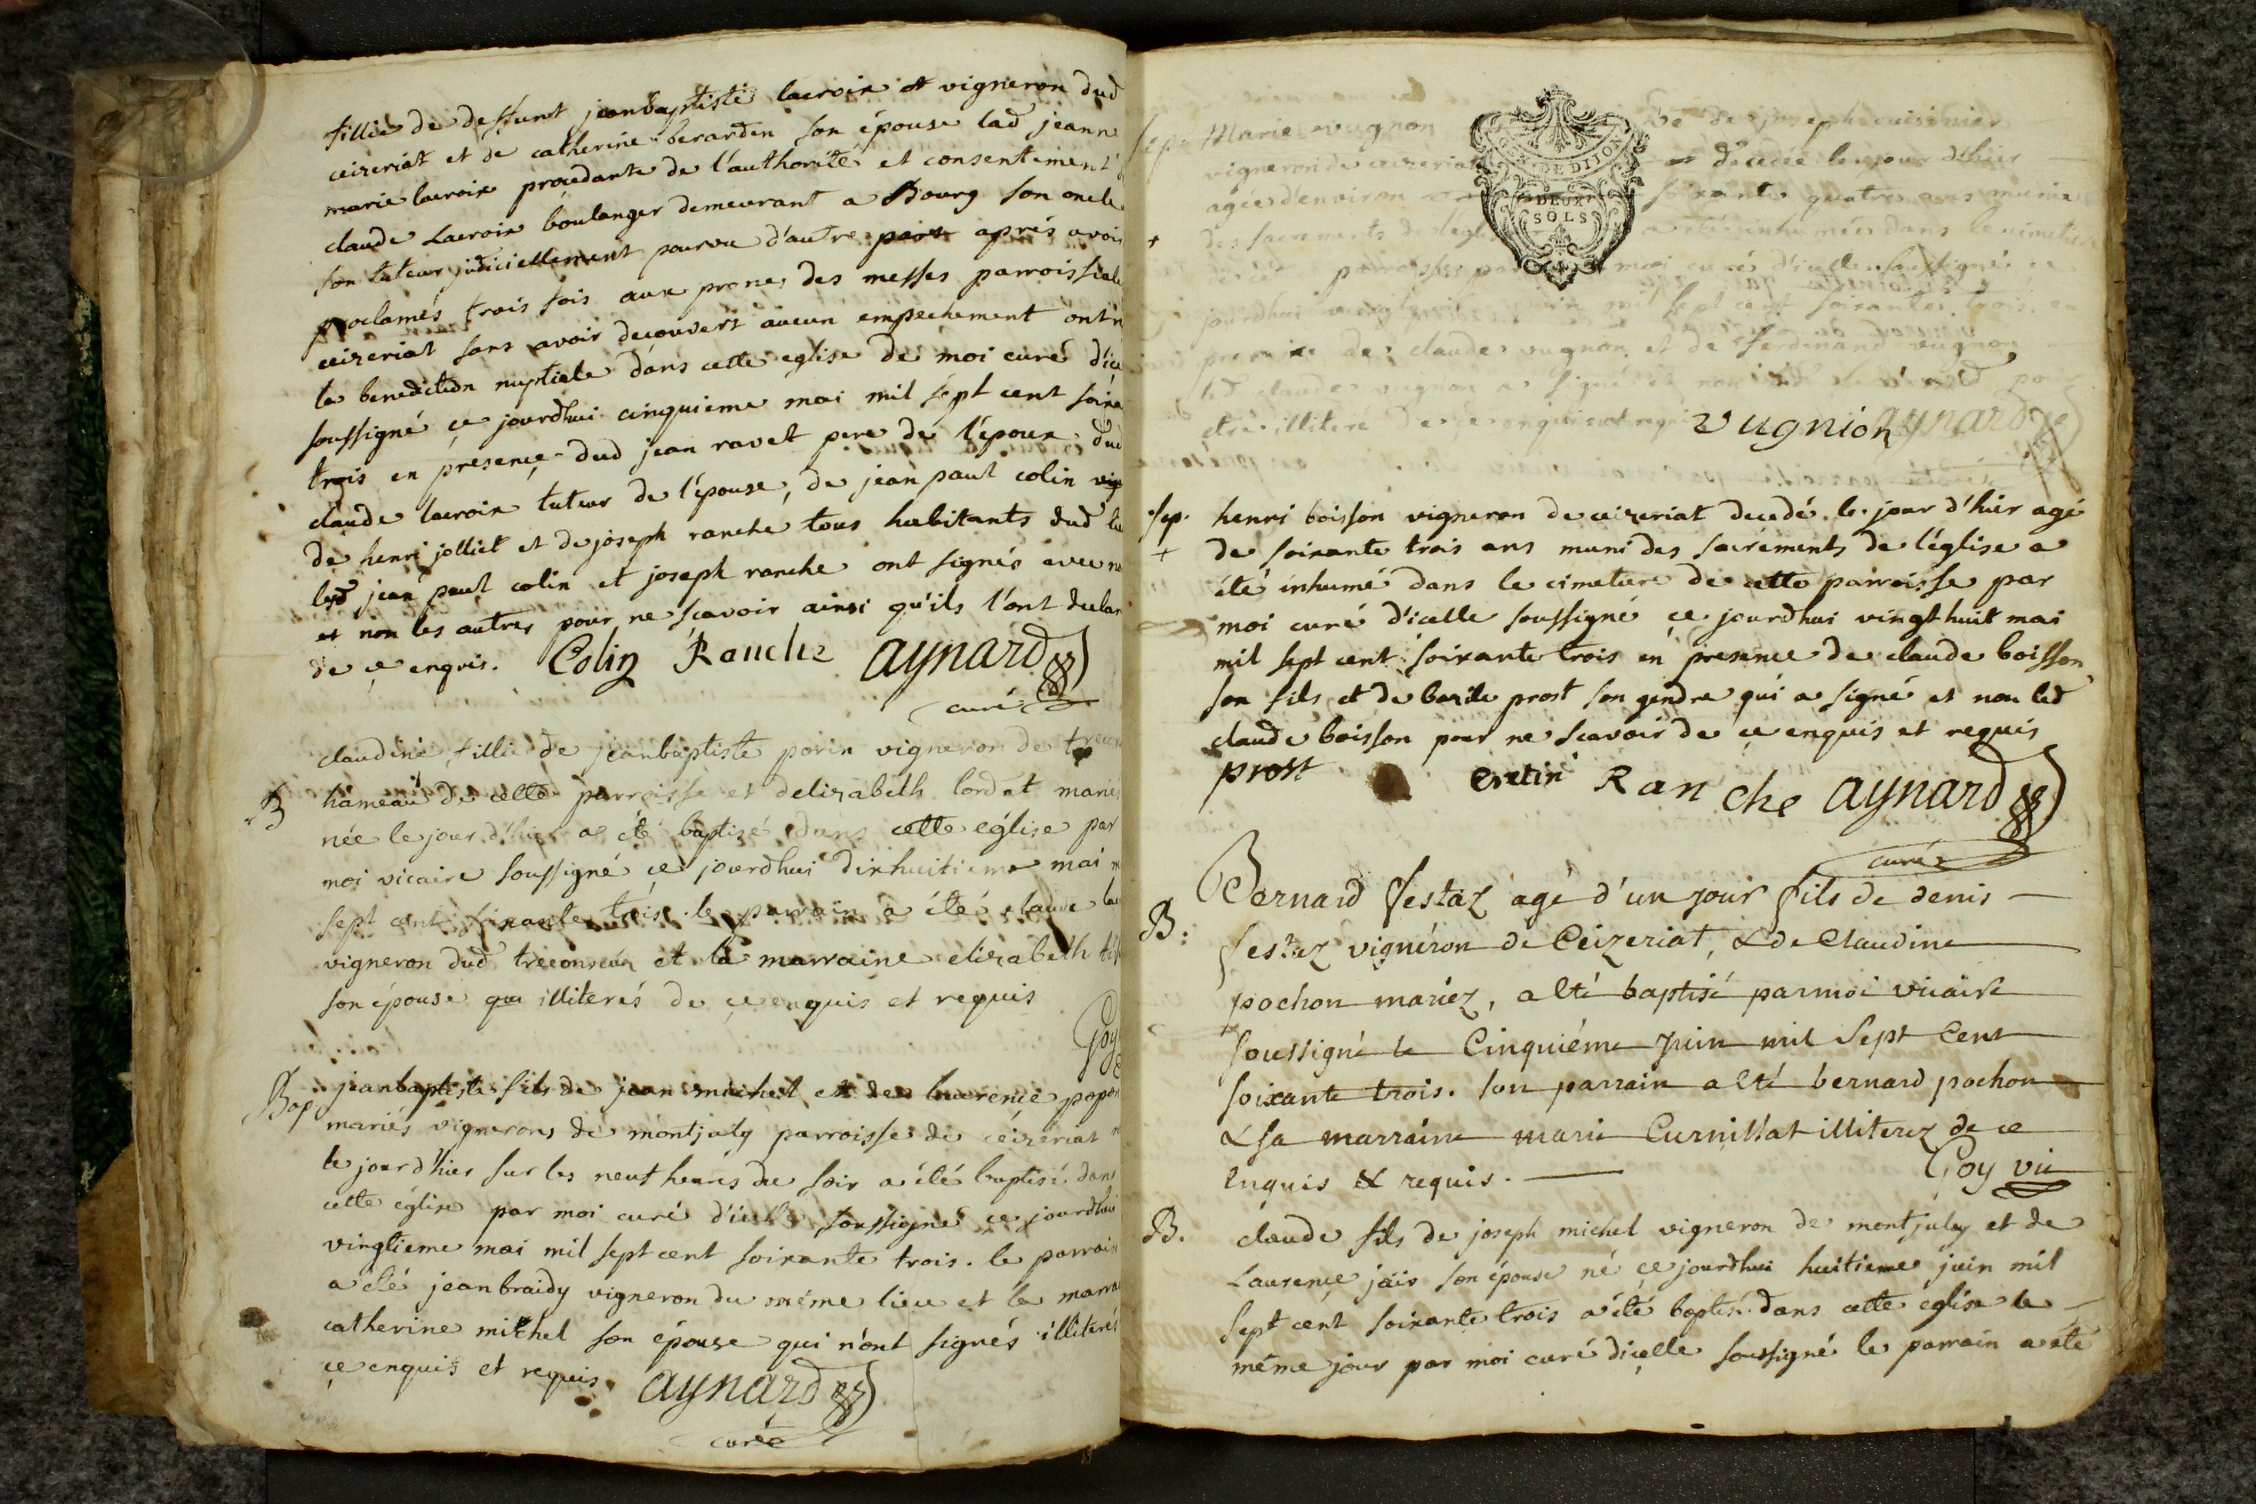 fillie de deffunt jeanbaptiste lacroix et vigneron dud
ceizeriat et de catherine berarden son épouse lad jeann
marie lacroix procedante de l'authorité et consentement
claude Lacroix boulanger demeurant a Bourg son oncle
son tuteur judiciellement pourvu d'autre part aprés avoir
proclamés trois fois aux prone des messes parroissiale
ceizeriat sans avoir decouvert aucun empechement ont
la benediction nuptiale dans cette eglise de moi curé d'ice
soussigné ce jourdhui cinquieme mai mil sept cent soixa
trois en presence dud jean ravet pere de l'époux dud
claude lacroix tuteur de l'épouse, de jean paul colin vig
de henri jolliet et de joseph ranche tous habitants dud
lesd jean paul colin et joseph ranche ont signés avec
et non les autres pour ne scavoir ainsi qu'ils l'ont declar
de ce enquis. Colin Ranche aynard
curé
claudine fillie de jeanbaptiste porin vigneron de
B hameau de cette parroisse et delizabeth lordet marié
née le jour d'hier a été baptizé dans cette eglise par
moi vicaire soussigné ce jourdhui dixhuitieme mai
sept cent soixante trois le parrain a été claude
vigneron dud treconnas et la marraine elizabeth
son épouse illiterés de ce enquis et requis
Goy
Bap. jeanbaptiste fils de jean michel et de laurence popon
mariés vignerons de montjuly parroisse de ceizeriat
le jour d'hier sur les neuf heures du soir a été baptisé dans
cette église par moi curé d'icelle soussigné ce jourdhui
vingtieme mai mil sept cent soixante trois. le parrain
a été jean braidy vigneron du même lieu et la marra
catherine michel son épouse qui n'ont signés illiterés
ce enquis et requis aynard
curé
GEN. DE DIJON
DEUX
SOLS
Sep. Marie vugnon ve de joseph cuisinier
vigneron de ceizeriat decedée le jour d'hier
agée d'environ soixante quatre ans munie
+ des sacrements de l'église a été inhumée dans le cimetiere
parroisse par moi curé d'icelle soussigné ce
jourdhui mil sept cent soixante trois en
presence de claude vugnon et de ferdinand vugnon
led claude vugnon a signé et non
etre illitere de ce enquis et requis Vugnion aynard
Sep. henri boisson vigneron de ceizeriat decedé le jour d'hier agé
+ de soixante trois ans muni des sacréments de l'église a
été inhumé dans le cimetiere de cette parroisse par
moi curé d'icelle soussigné ce jourdhui vingthuit mai
mil sept cent soixante trois en presence de claude boisson
son fils et de bazile prost son gendre qui a signé et non led
claude boisson pour ne scavoir de ce enquis et requis
prost cretin Ranche aynard
curé
Bernard festaz agé d'un jour fils de denis
B: festaz vignéron de Ceizeriat, & de Claudine
pochon mariez, a été baptisé par moi vicaire
soussigné le Cinquiéme Juin mil Sept Cent
soixante trois. son parrain a été bernard pochon
& sa marraine marie Curnillat illiterez de ce
enquis & requis. Goy vic
B. claude fils de joseph michel vigneron de montjuly et de
Laurence jair son épouse né ce jourdhui huitieme juin mil
Sept cent soixante trois a été baptisé dans cette église le
même jour par moi curé dicelle soussigné le parrain a été